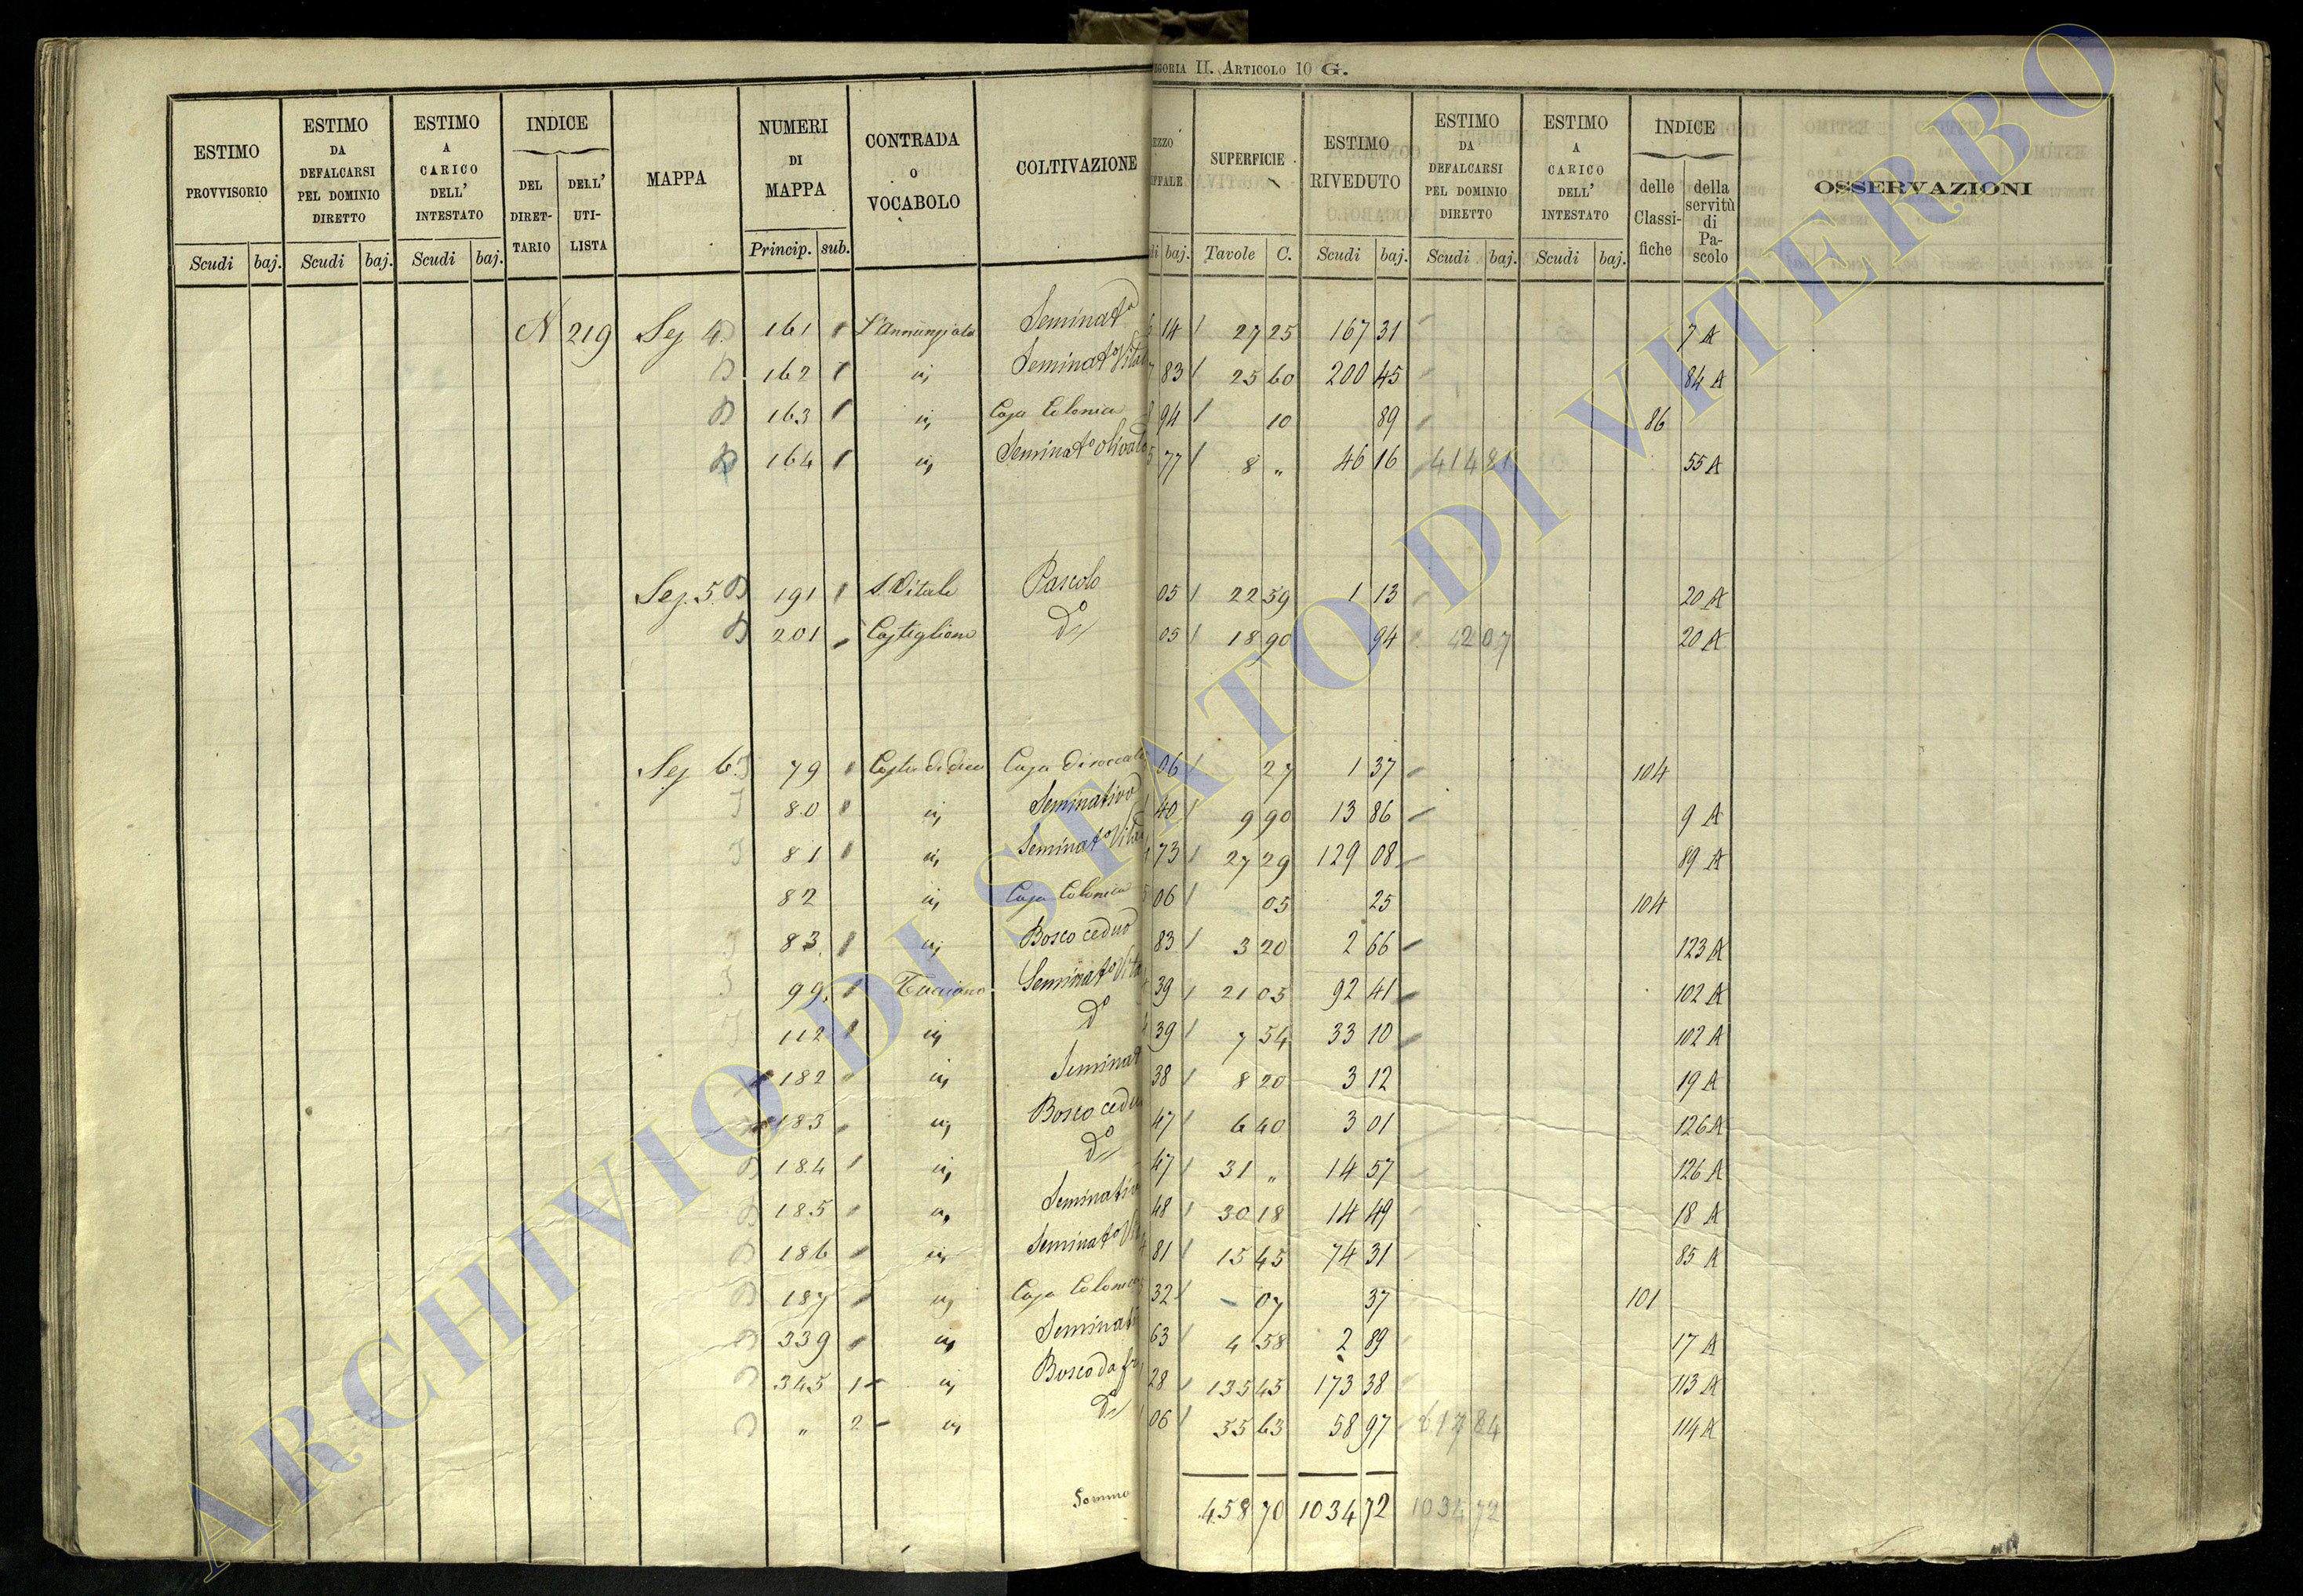 EGORIA II. ARTICOLO 10 G.
ESTIMO PROVVISORIO
ESTIMO DA DEFALCARSI PEL DOMINIO DIRETTO
ESTIMO A CARICO DELL' INTESTATO
INDICE
DEL DIRETTARIO
DELL' UTILISTA
MAPPA
NUMERI DI MAPPA
CONTRADA O VOCABOLO
COLTIVAZIONE
EZZO
IFFALE
SUPERFICIE
ESTIMO RIVEDUTO
ESTIMO DA DEFALCARSI PEL DOMINIO DIRETTO
ESTIMO A CARICO DELL' INTESTATO
INDICE
delle Classifiche
della servitù di Pascolo
OSSERVAZIONI
Scudi baj. Scudi baj. Scudi baj. Princip. sub. baj. Tavole C. Scudi baj. Scudi baj. Scudi baj.
N 219 Sez 4. 161 L'Annunziata Seminat° 14 27 25 167 31 7 A
162 id Seminat° Vitat 83 25 60 200 45 84 A
163 id Casa Colonica 94 10 89 86
164 id Seminat° olivato 77 8 " 46 16 414 81 55 A
Sez. 5. 191 S. Vitale Pascolo 05 22 59 1 13 20 A
201 Castiglione D° 05 18 90 94 2 07 20 A
Sez 6. 79 Casa Diroccata 06 27 1 37 104
80 id Seminativo 40 9 90 13 86 9 A
81 id Seminat° Vitat 73 27 29 129 08 89 A
82 id Casa Colonica 06 05 25 104
83 id Bosco ceduo 83 3 20 2 66 123 A
99 Seminat° Vita 39 21 05 92 41 102 A
112 id D° 39 7 54 33 10 102 A
182 id Seminat 38 8 20 3 12 19 A
183 id Bosco cedu 47 6 40 3 01 126 A
184 id D° 47 31 " 14 57 126 A
185 id Seminativ 48 30 18 14 49 18 A
186 id Seminat° Vi 81 15 45 74 31 85 A
187 id Casa Colonica 32 07 37 101
339 id Seminati 63 4 58 2 89 17 A
345 1 id Bosco da fr 28 135 45 173 38 113 A
" 2 id D° 06 55 63 58 97 617 84 114 A
Somma 458 70 1034 72 1034 72
ARCHIVIO DI STATO DI VITERBO